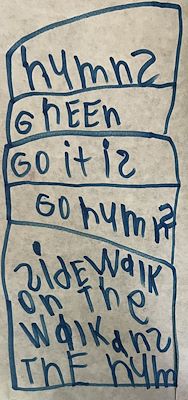 hymns
GhEEn
GO it is
GO hymns
SidEWalk
on The
Walk ans
ThE hym